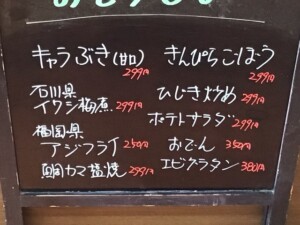 キャラぶき(甘口)
299円
石川県
イワシ梅煮 299円
福岡県
アジフライ 250円
真鯛カマ塩焼 299円
きんぴらごぼう
299円
ひじき炒め 299円
ポテトサラダ
299円
おでん 350円
エビグラタン 380円